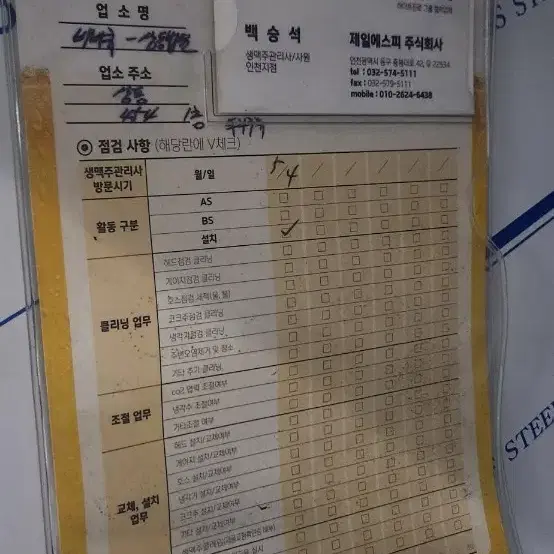 업 소 명
업소 주소
1층
하이트진로 그룹 협력업체
백 승 석
생맥주관리사/사원
인천지점
제일에스피 주식회사
인천광역시 동구 중봉대로 42, 우 22534
tel : 032-574-5111
fax : 032-575-5111
mobile : 010-2624-6438
점검 사항 (해당란에 V체크)
생맥주관리사 방문시기
월/일
5/4
활동 구분
AS
BS
설치
클리닝 업무
헤드점검 클리닝
게이지점검 클리닝
호스점검 세척(물, 볼)
코크주점검 클리닝
냉각기점검 클리닝
주변오염제거 및 청소
기타 추가 클리닝
조절 업무
co2 압력 조절여부
냉각수 조절여부
기타조절 여부
교체, 설치 업무
헤드 설치/교체여부
게이지 설치/교체여부
호스 설치/교체여부
냉각기 설치/교체여부
코크주 설치/교체여부
기타 설치/교체여부
STEEL
STEE